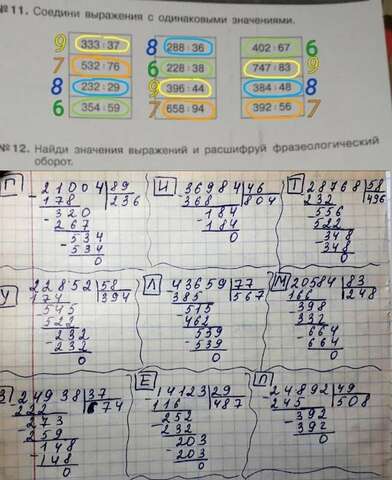 №11. Соедини выражения с одинаковыми значениями.
9 333 : 37 8 288 : 36 402 : 67 6
7 532 : 76 6 228 : 38 747 : 83 9
8 232 : 29 9 396 : 44 384 : 48 8
6 354 : 59 7 658 : 94 392 : 56 7
№12. Найди значения выражений и расшифруй фразеологический
оборот.
П - 21004 | 89 И - 36984 | 46 Т - 28768 | 58
178 | 236 368 | 804 232 | 496
- 320 - 184 - 556
267 184 522
- 534 0 - 348
534 348
0 0
У - 22852 | 58 Л - 43659 | 77 М - 20584 | 83
174 | 394 385 | 567 166 | 248
- 545 - 515 - 398
522 462 332
- 232 - 539 - 664
232 539 664
0 0 0
З - 24938 | 37 Е - 14123 | 29 П - 24892 | 49
222 | 674 116 | 487 245 | 508
- 273 - 252 - 392
259 232 392
- 148 - 203 0
148 203
0 0